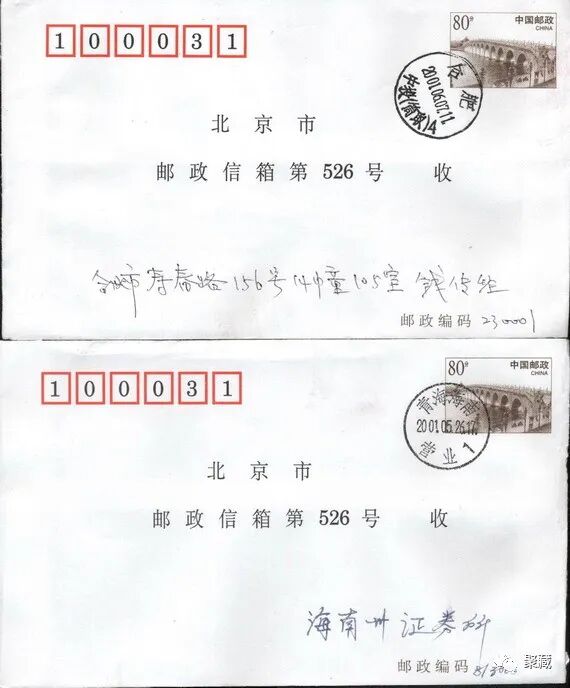 100031
80分
中国邮政
CHINA
合肥
2001.06.07.11
北京市
邮政信箱第526号 收
合肥市寿春路156号14幢105室 钱
邮政编码 230001
100031
80分
中国邮政
CHINA
青海海南
2001.05.26.17
营业1
北京市
邮政信箱第526号 收
海南州证券科
邮政编码
聚藏